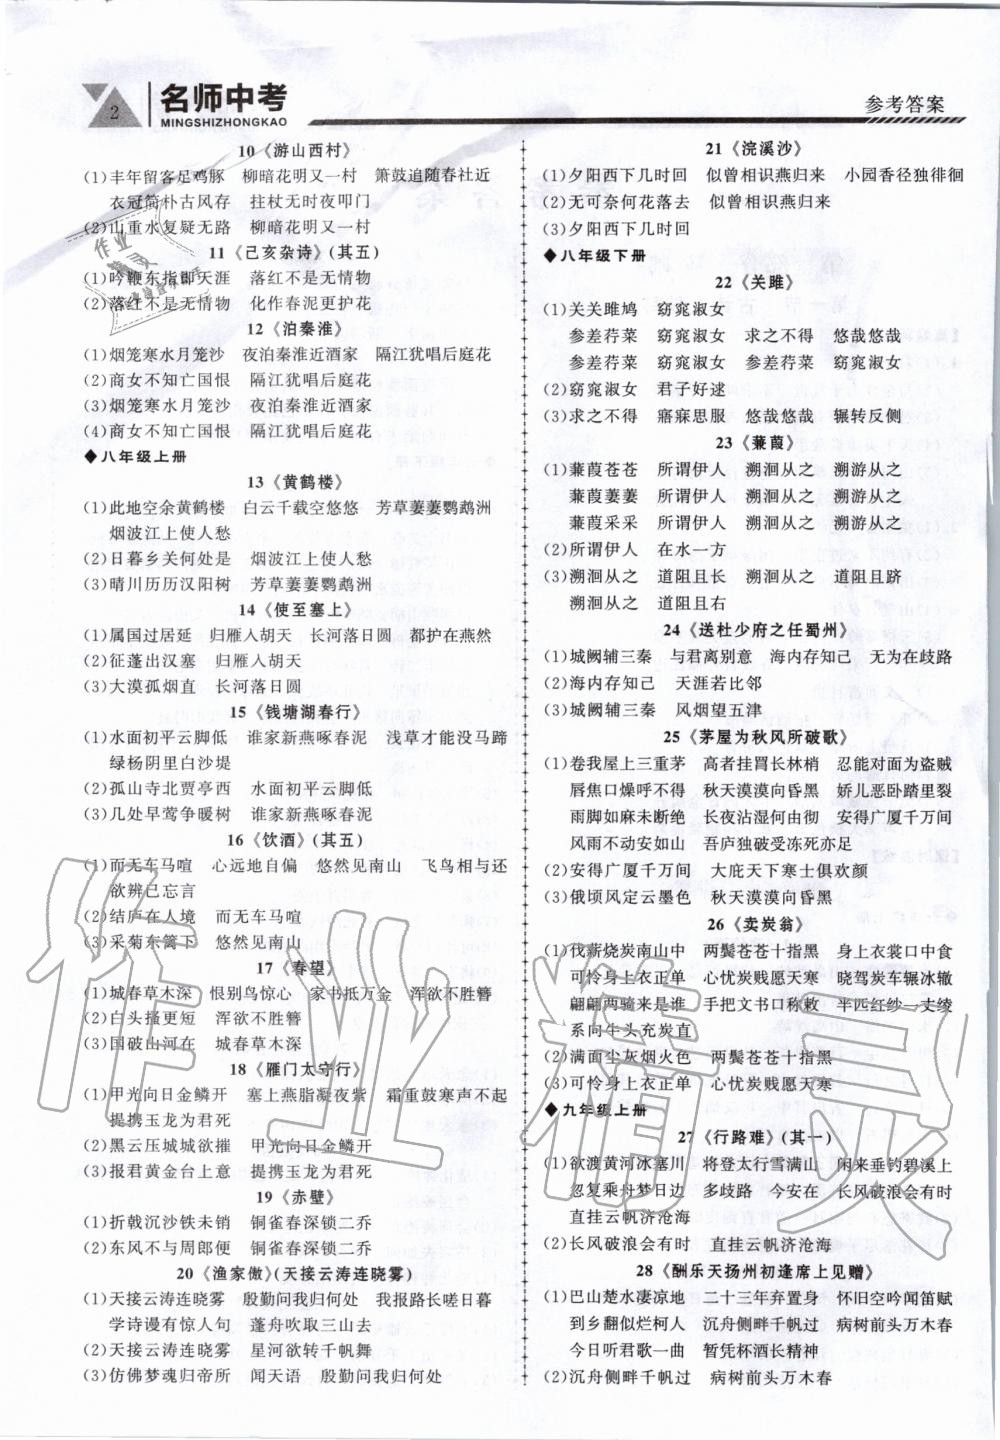 2
名师中考
MINGSHIZHONGKAO
参考答案
10《游山西村》
(1)丰年留客足鸡豚 柳暗花明又一村 箫鼓追随春社近
衣冠简朴古风存 拄杖无时夜叩门
(2)山重水复疑无路 柳暗花明又一村
11《己亥杂诗》(其五)
(1)吟鞭东指即天涯 落红不是无情物
(2)落红不是无情物 化作春泥更护花
12《泊秦淮》
(1)烟笼寒水月笼沙 夜泊秦淮近酒家 隔江犹唱后庭花
(2)商女不知亡国恨 隔江犹唱后庭花
(3)烟笼寒水月笼沙 夜泊秦淮近酒家
(4)商女不知亡国恨 隔江犹唱后庭花
◆八年级上册
13《黄鹤楼》
(1)此地空余黄鹤楼 白云千载空悠悠 芳草萋萋鹦鹉洲
烟波江上使人愁
(2)日暮乡关何处是 烟波江上使人愁
(3)晴川历历汉阳树 芳草萋萋鹦鹉洲
14《使至塞上》
(1)属国过居延 归雁入胡天 长河落日圆 都护在燕然
(2)征蓬出汉塞 归雁入胡天
(3)大漠孤烟直 长河落日圆
15《钱塘湖春行》
(1)水面初平云脚低 谁家新燕啄春泥 浅草才能没马蹄
绿杨阴里白沙堤
(2)孤山寺北贾亭西 水面初平云脚低
(3)几处早莺争暖树 谁家新燕啄春泥
16《饮酒》(其五)
(1)而无车马喧 心远地自偏 悠然见南山 飞鸟相与还
欲辨已忘言
(2)结庐在人境 而无车马喧
(3)采菊东篱下 悠然见南山
17《春望》
(1)城春草木深 恨别鸟惊心 家书抵万金 浑欲不胜簪
(2)白头搔更短 浑欲不胜簪
(3)国破山河在 城春草木深
18《雁门太守行》
(1)甲光向日金鳞开 塞上燕脂凝夜紫 霜重鼓寒声不起
提携玉龙为君死
(2)黑云压城城欲摧 甲光向日金鳞开
(3)报君黄金台上意 提携玉龙为君死
19《赤壁》
(1)折戟沉沙铁未销 铜雀春深锁二乔
(2)东风不与周郎便 铜雀春深锁二乔
20《渔家傲》(天接云涛连晓雾)
(1)天接云涛连晓雾 殷勤问我归何处 我报路长嗟日暮
学诗谩有惊人句 蓬舟吹取三山去
(2)天接云涛连晓雾 星河欲转千帆舞
(3)仿佛梦魂归帝所 闻天语 殷勤问我归何处
21《浣溪沙》
(1)夕阳西下几时回 似曾相识燕归来 小园香径独徘徊
(2)无可奈何花落去 似曾相识燕归来
(3)夕阳西下几时回
◆八年级下册
22《关雎》
(1)关关雎鸠 窈窕淑女
参差荇菜 窈窕淑女 求之不得 悠哉悠哉
参差荇菜 窈窕淑女 参差荇菜 窈窕淑女
(2)窈窕淑女 君子好逑
(3)求之不得 寤寐思服 悠哉悠哉 辗转反侧
23《蒹葭》
(1)蒹葭苍苍 所谓伊人 溯洄从之 溯游从之
蒹葭萋萋 所谓伊人 溯洄从之 溯游从之
蒹葭采采 所谓伊人 溯洄从之 溯游从之
(2)所谓伊人 在水一方
(3)溯洄从之 道阻且长 溯洄从之 道阻且跻
溯洄从之 道阻且右
24《送杜少府之任蜀州》
(1)城阙辅三秦 与君离别意 海内存知己 无为在歧路
(2)海内存知己 天涯若比邻
(3)城阙辅三秦 风烟望五津
25《茅屋为秋风所破歌》
(1)卷我屋上三重茅 高者挂罥长林梢 忍能对面为盗贼
唇焦口燥呼不得 秋天漠漠向昏黑 娇儿恶卧踏里裂
雨脚如麻未断绝 长夜沾湿何由彻 安得广厦千万间
风雨不动安如山 吾庐独破受冻死亦足
(2)安得广厦千万间 大庇天下寒士俱欢颜
(3)俄顷风定云墨色 秋天漠漠向昏黑
26《卖炭翁》
(1)伐薪烧炭南山中 两鬓苍苍十指黑 身上衣裳口中食
可怜身上衣正单 心忧炭贱愿天寒 晓驾炭车辗冰辙
翩翩两骑来是谁 手把文书口称敕 半匹红纱一丈绫
系向牛头充炭直
(2)满面尘灰烟火色 两鬓苍苍十指黑
(3)可怜身上衣正单 心忧炭贱愿天寒
◆九年级上册
27《行路难》(其一)
(1)欲渡黄河冰塞川 将登太行雪满山 闲来垂钓碧溪上
忽复乘舟梦日边 多歧路 今安在 长风破浪会有时
直挂云帆济沧海
(2)长风破浪会有时 直挂云帆济沧海
28《酬乐天扬州初逢席上见赠》
(1)巴山楚水凄凉地 二十三年弃置身 怀旧空吟闻笛赋
到乡翻似烂柯人 沉舟侧畔千帆过 病树前头万木春
今日听君歌一曲 暂凭杯酒长精神
(2)沉舟侧畔千帆过 病树前头万木春
作业精灵